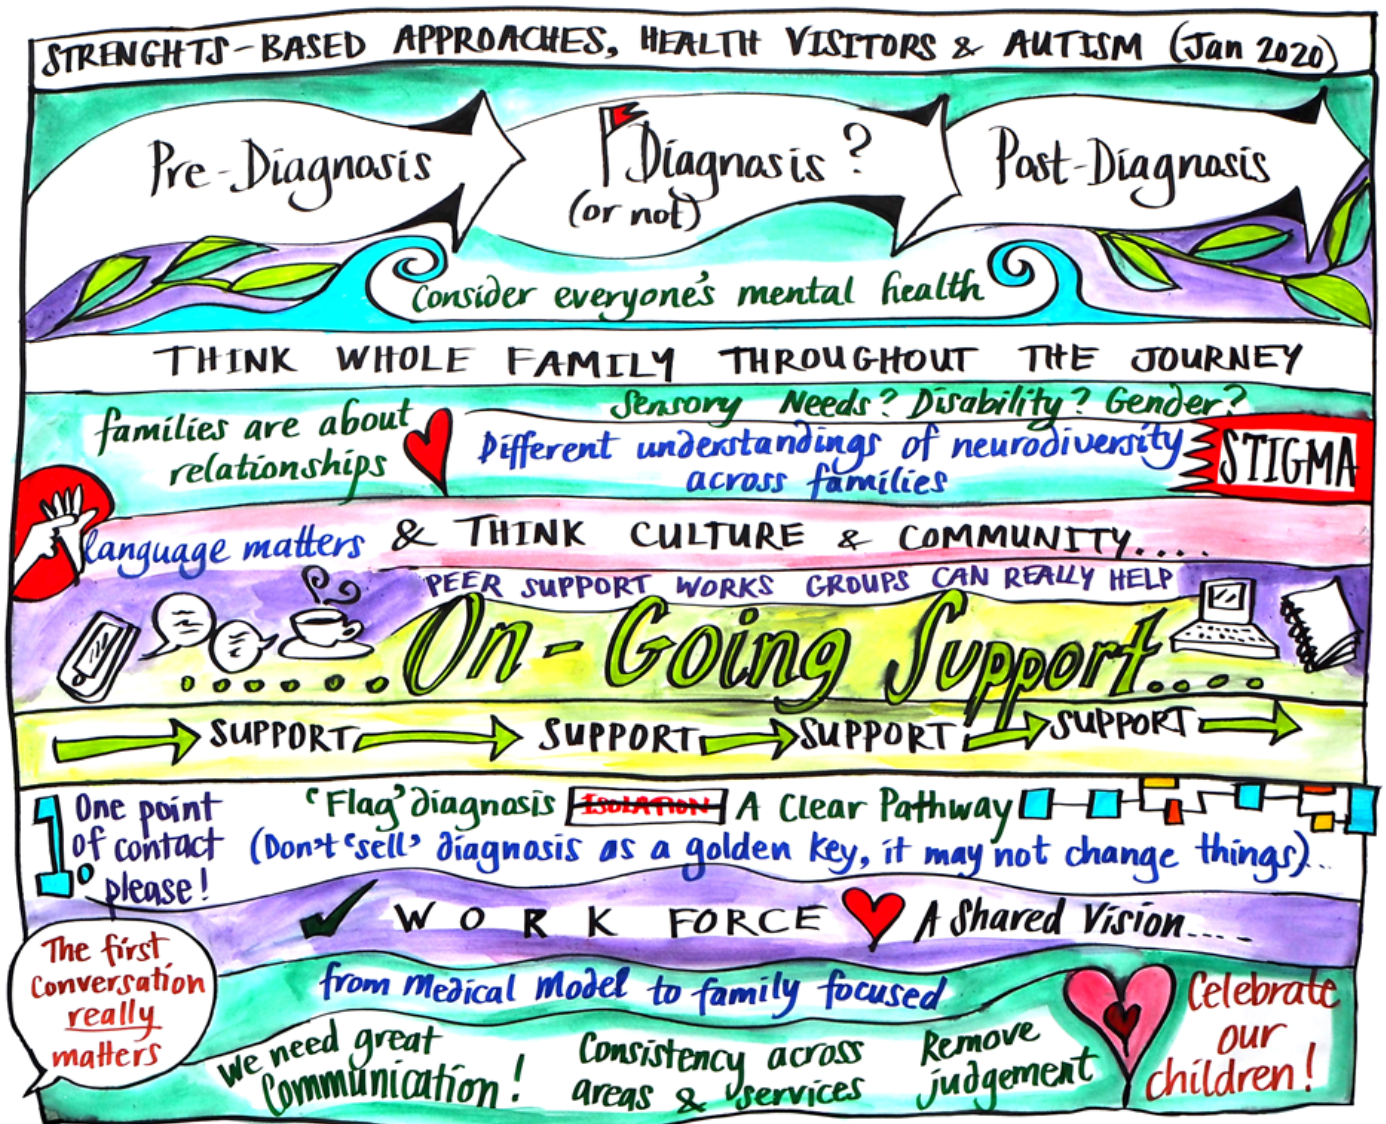 STRENGHTS-BASED APPROACHES, HEALTH VISITORS & AUTISM (Jan 2020)
Pre-Diagnosis
Diagnosis?
(or not)
Post-Diagnosis
Consider everyone's mental health
THINK WHOLE FAMILY THROUGHOUT THE JOURNEY
families are about
relationships
Sensory Needs? Disability? Gender?
Different understandings of neurodiversity
across families
STIGMA
language matters
& THINK CULTURE & COMMUNITY....
PEER SUPPORT WORKS GROUPS CAN REALLY HELP
On-Going Support....
SUPPORT SUPPORT SUPPORT SUPPORT
1.
One point
of contact
please!
'Flag' diagnosis ISOLATION A Clear Pathway
(Don't 'sell' diagnosis as a golden key, it may not change things)...
WORK FORCE A Shared Vision....
The first
conversation
really
matters
from Medical Model to family focused
We need great
Communication!
Consistency across
areas & services
Remove
judgement
Celebrate
our
children!